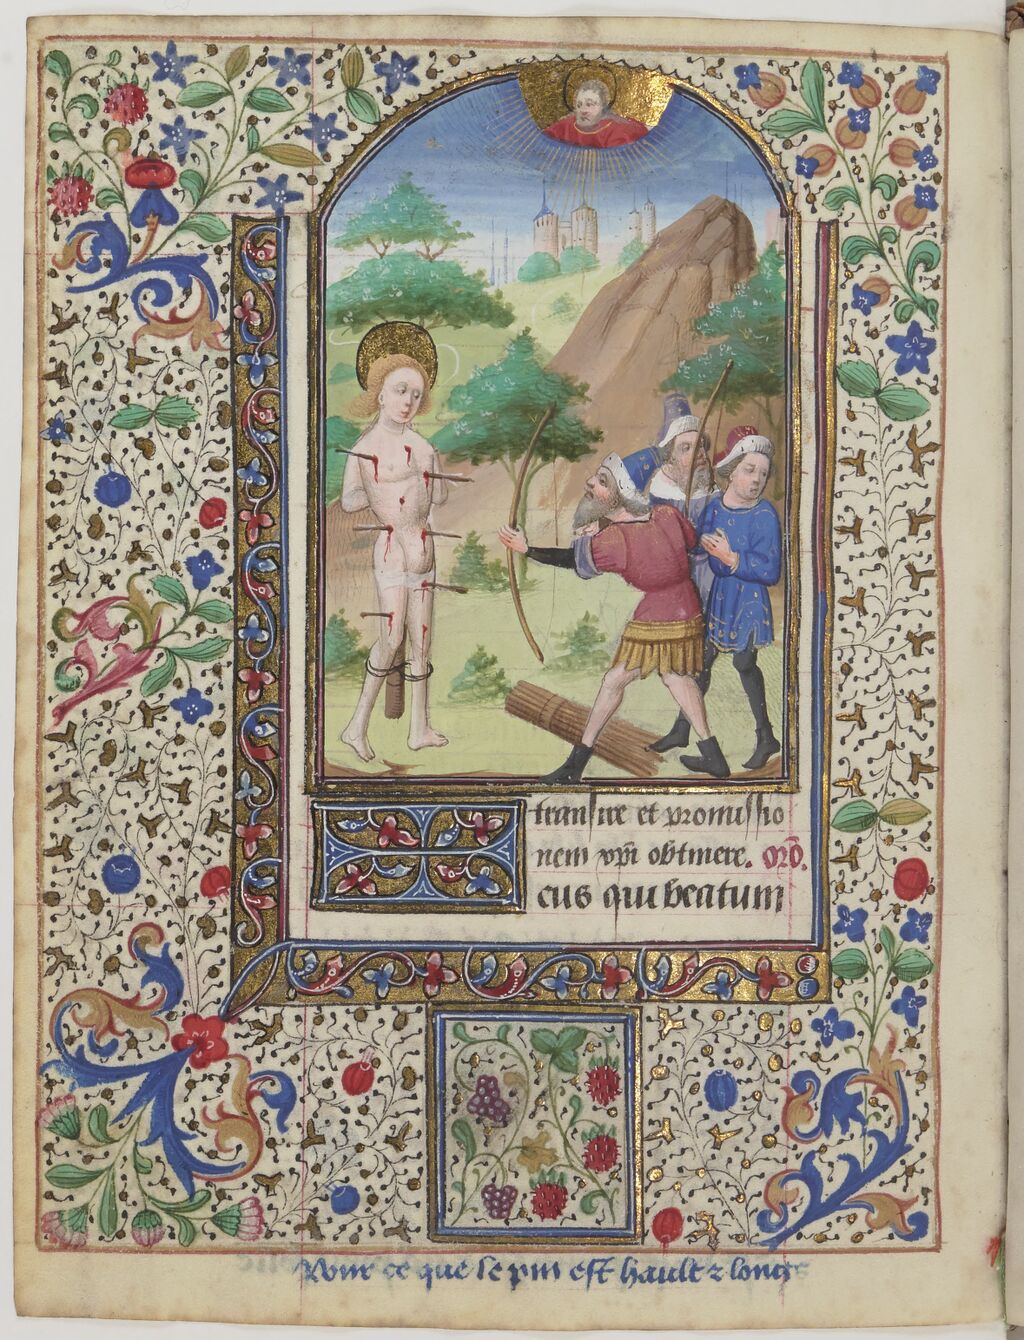 transire et promissio
nem xpi obtinere. Oro.
eus qui beatum
Pour ce que le pin est hault & long